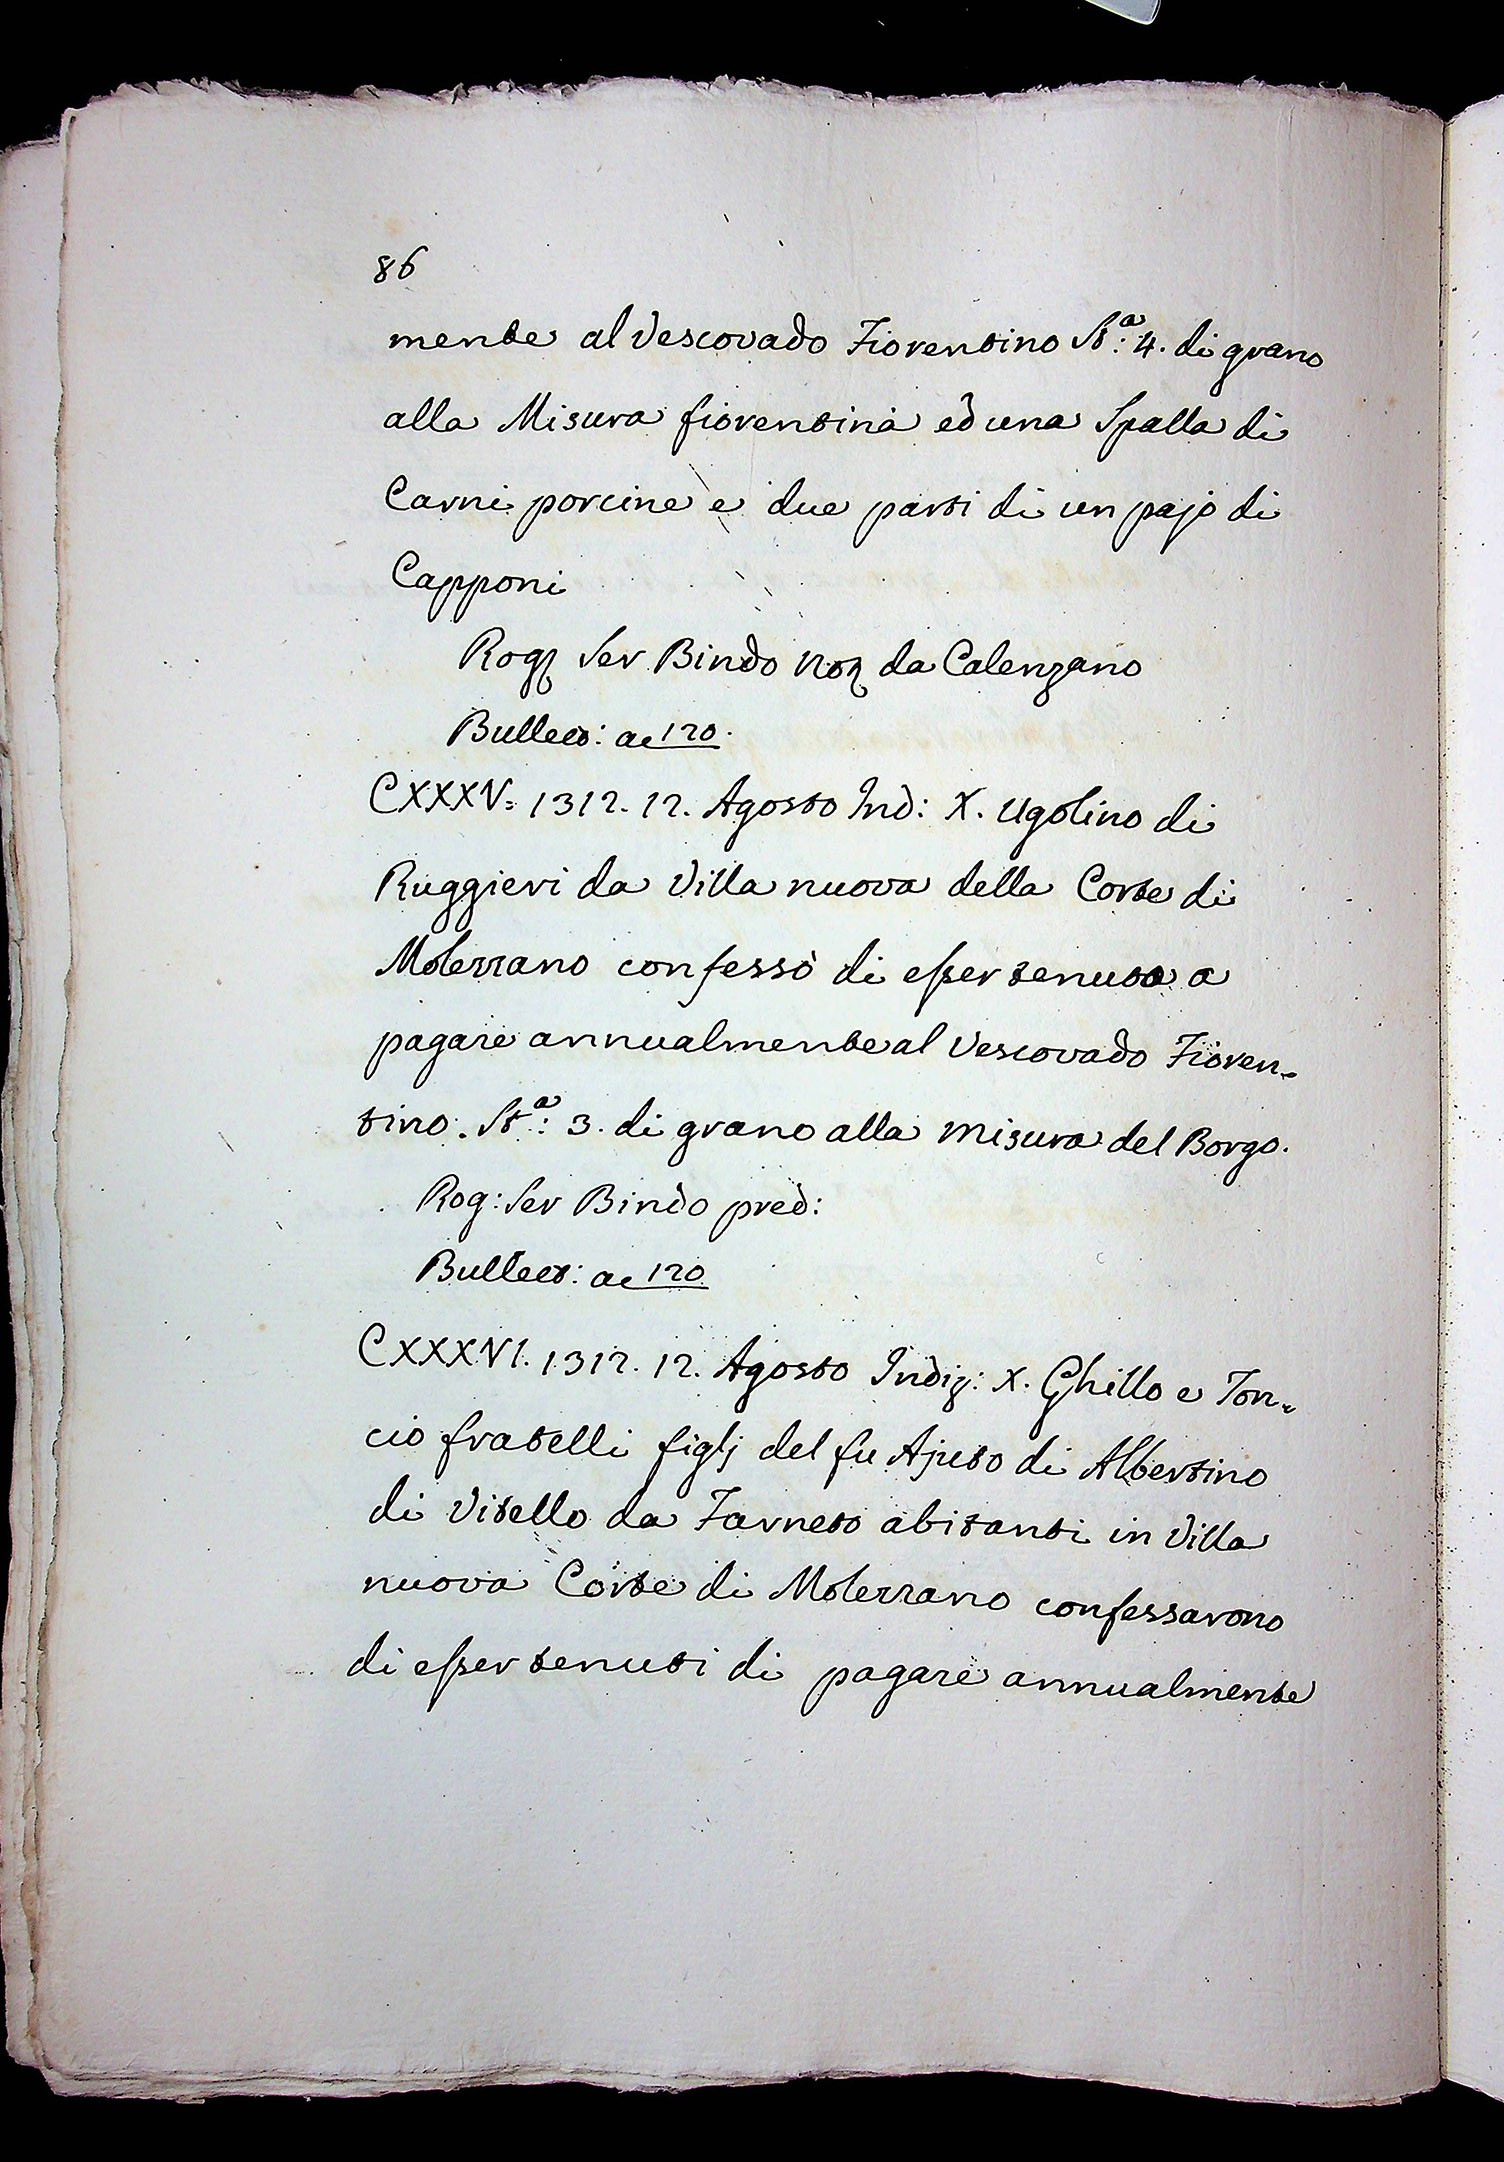 86
mente al Vescovado Fiorentino St.ª: 4. di grano
alla Misura fiorentina ed una Spalla di
Carni porcine e due parti di un pajo di
Capponi
Rog. Ser Bindo Not. da Calenzano
Bullett: ac 120.
CXXXV. 1312. 12. Agosto Ind: X. Ugolino di
Ruggieri da Villa nuova della Corte di
Molezzano confessò di esser tenuto a
pagare annualmente al Vescovado Fioren-
tino. St.ª: 3. di grano alla misura del Borgo.
Rog: Ser Bindo pred:
Bullett: ac 120
CXXXVI. 1312. 12. Agosto Indiz: X. Ghillo e Ton-
cio fratelli figlj del fu Ajuto di Albertino
di Vitello da Farneto abitanti in Villa
nuova Corte di Molezzano confessarono
di esser tenuti di pagare annualmente